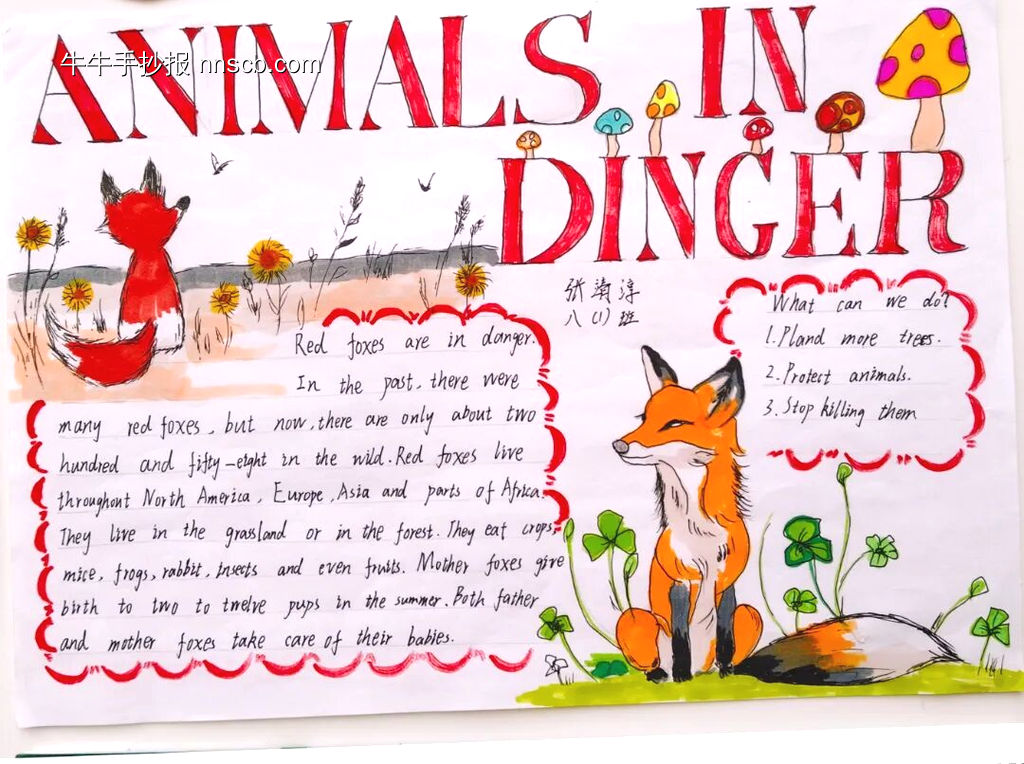 牛牛手抄报 nnscb.com
ANIMALS IN
DINGER
张 淳
八(1)班
Red foxes are in danger.
In the past, there were
many red foxes, but now, there are only about two
hundred and fifty-eight in the wild. Red foxes live
throughout North America, Europe, Asia and parts of Africa.
They live in the grassland or in the forest. They eat crops,
mice, frogs, rabbit, insects and even fruits. Mother foxes give
birth to two to twelve pups in the summer. Both father
and mother foxes take care of their babies.
What can we do?
1. Pland more trees.
2. Protect animals.
3. Stop killing them